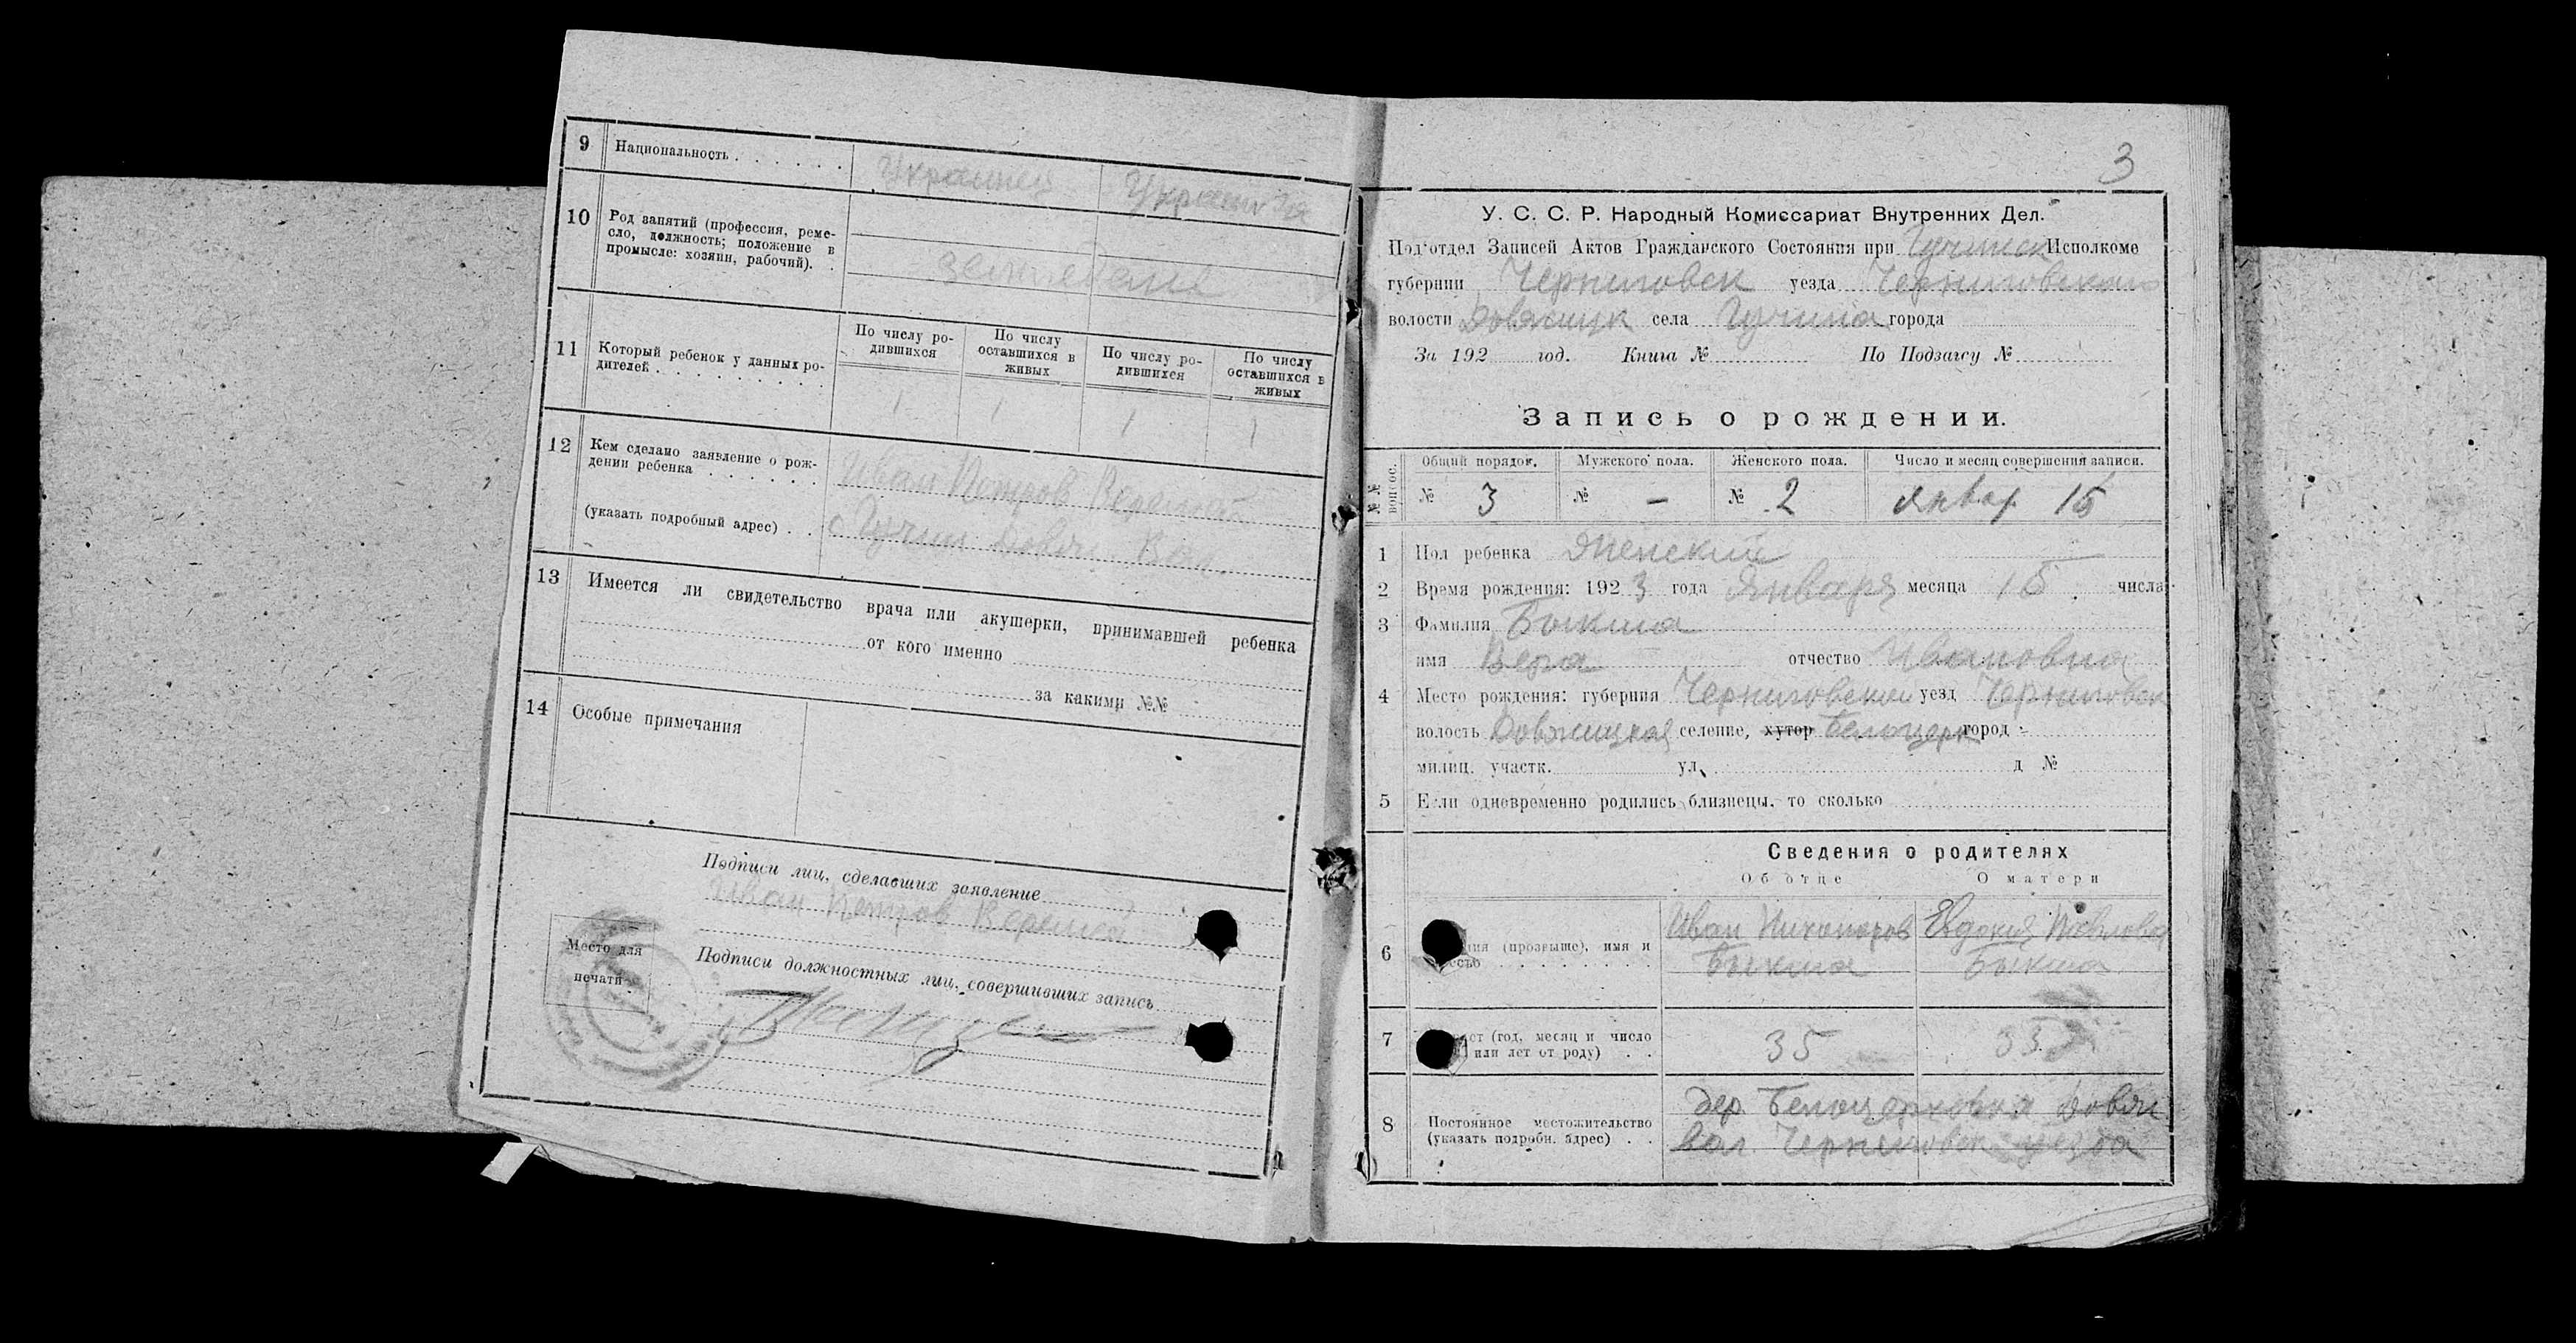 9 Национальность . . . . . . Украинец Украинка
10 Род занятий (профессия, реме-
сло, должность; положение в
промысле: хозяин, рабочий). .
земледелие
11 Который ребенок у данных ро-
дителей . . . . . . . . . .
По числу ро-
дившихся
По числу
оставшихся в
живых
По числу ро-
дившихся
По числу
оставшихся в
живых
1 1 1 1
12 Кем сделано заявление о рож-
дении ребенка . . . . . .
Иван Петров
(указать подробный адрес) . .
с Гучин Довж. Вол.
13 Имеется ли свидетельство врача или акушерки, принимавшей ребенка
от кого именно
за какими №№
14 Особые примечания
Подписи лиц, сделавших заявление
Иван Петров
Место для
печати
Подписи должностных лиц, совершивших запись
3
У. С. С. Р. Народный Комиссариат Внутренних Дел.
Под'отдел Записей Актов Гражданского Состояния при Гучинск Исполкоме
губернии Черниговск уезда Черниговского
волости Довжицк села Гучина города
За 192 год. Книга № По Подзагсу №
Запись о рождении.
№№ вопрос. Общий порядок. Мужского пола. Женского пола. Число и месяц совершения записи.
№ 3 № – № 2 Январ 15
1 Пол ребенка Женский
2 Время рождения: 1923 года Января месяца 15 числа
3 Фамилия Быкша
имя Вера отчество Ивановна
4 Место рождения: губерния Черниговской уезд Черниговск
волость Довжицкая селение, хутор Белоцерк город
милиц. участк. ул. д №
5 Если одновременно родились близнецы, то сколько
Сведения о родителях
Об отце О матери
6 (прозвыще), имя и
Иван Никоноров Евдокия Павлова
Быкша Быкша
7 (год, месяц и число
или лет от роду) . .
35 33
8 Постоянное местожительство
(указать подробн. адрес) . .
дер. Белоцерковка Довж
вол. Черниговск уезда